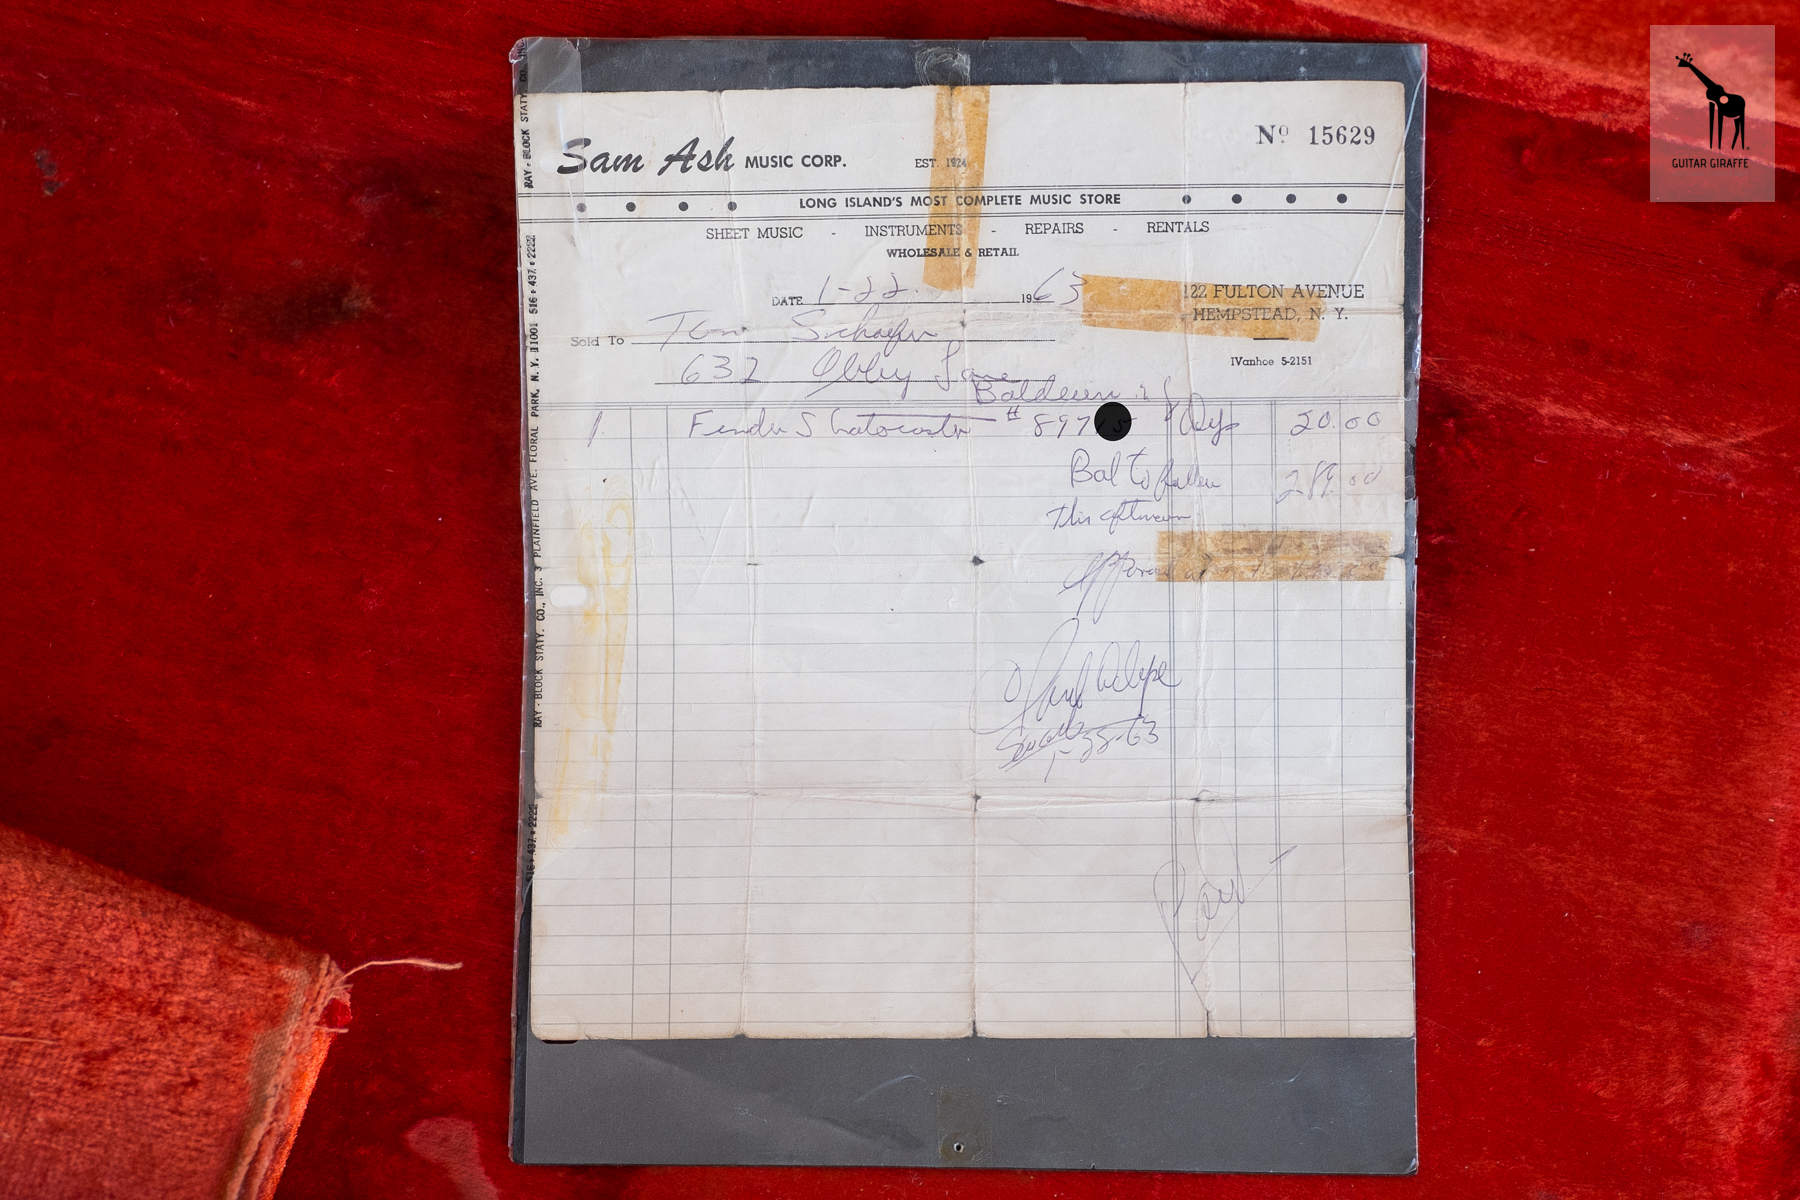 GUITAR GIRAFFE
Nº 15629
Sam Ash MUSIC CORP. EST. 1924
LONG ISLAND'S MOST COMPLETE MUSIC STORE
SHEET MUSIC - INSTRUMENTS - REPAIRS - RENTALS
WHOLESALE & RETAIL
122 FULTON AVENUE
HEMPSTEAD, N. Y.
IVanhoe 5-2151
DATE 1-22. 1963
Sold To Tom
632 Lane
1 Fender Stratocaster # 897 20.00
Bal to follow 289.00
this afternoon
1-22-63
Paid
RAY-BLOCK STATY. CO., INC. 3 PLAINFIELD AVE. FLORAL PARK, N. Y. 11001 516 • 437 • 2222
RAY-BLOCK STATY. CO., INC
516 • 437 • 2222